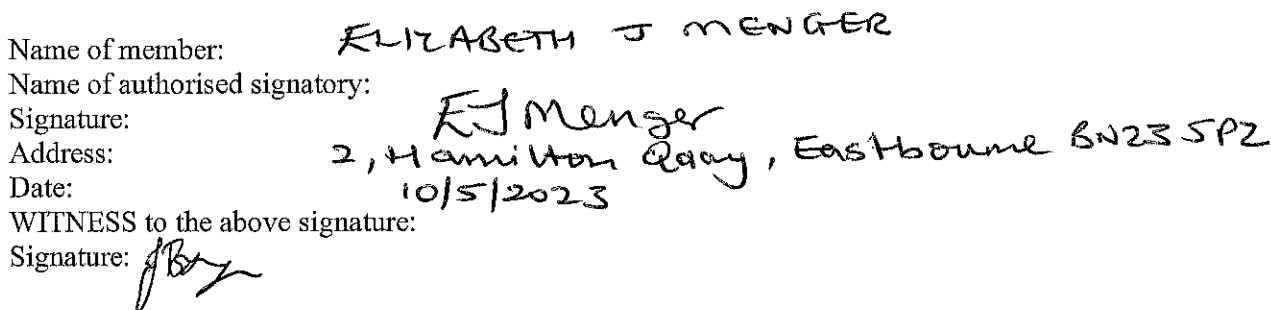 Name of member: ELIZABETH J MENGER
Name of authorised signatory:
Signature: EJ Menger
Address: 2, Hamilton Quay, Eastbourne BN23 5PZ
Date: 10/5/2023
WITNESS to the above signature:
Signature: